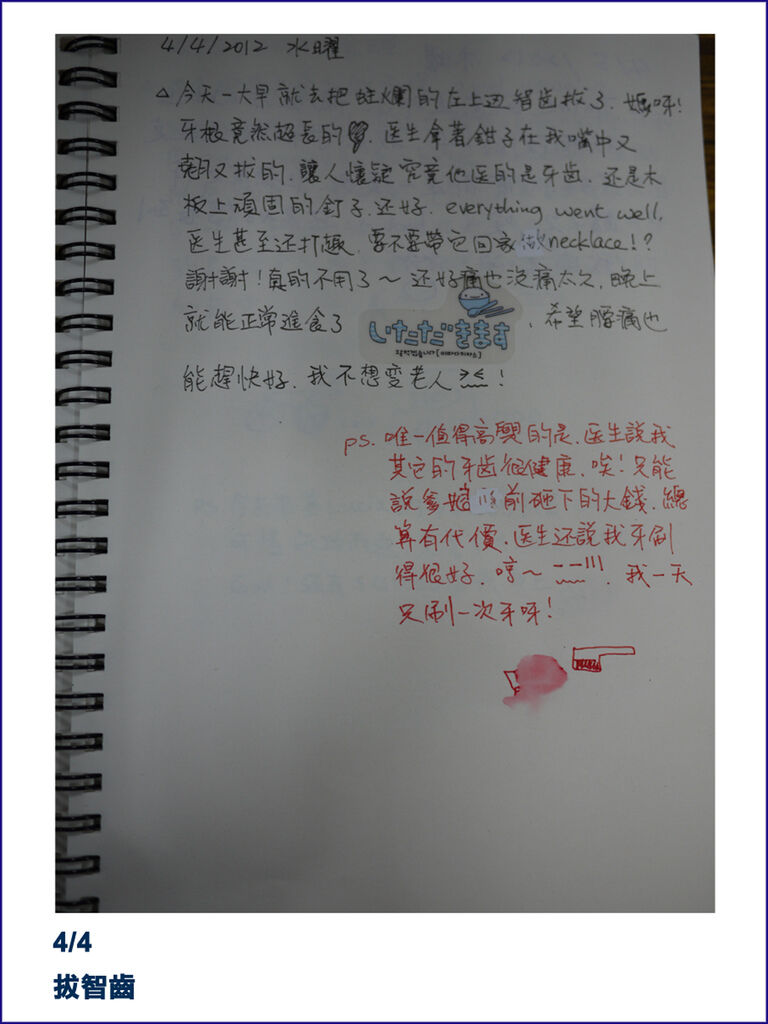 4/4/2012 水曜
△今天一大早就去把蛀爛的左上边智齒拔了. 媽呀!
牙根竟然超長的. 医生拿著鉗子在我嘴中又
翹又拔的. 讓人懷疑究竟他医的是牙齒. 还是木
板上頑固的釘子. 还好. everything went well.
医生甚至还打趣. 要不要帶它回家做necklace!?
謝謝!真的不用了～ 还好痛也沒痛太久. 晚上
就能正常進食了 . 希望腰痛也
いただきます
잘먹겠습니다 [이타다키마스]
能趕快好. 我不想变老人 !
ps. 唯一值得高興的是. 医生說我
其它的牙齒很健康. 唉!只能
說爹娘 前砸下的大錢. 總
算有代價. 医生还說我牙刷
得很好. 哼～ . 我一天
只刷一次牙呀!
4/4
拔智齒